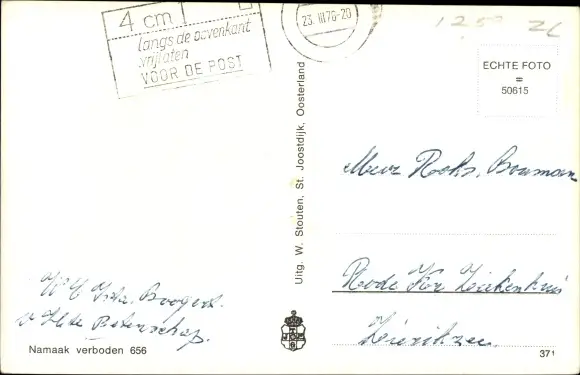 4 cm
langs de bovenkant
vrijlaten
VOOR DE POST
23. III 76-20
12.50 ZL
ECHTE FOTO
=
50615
Uitg. W. Stouten, St. Joostdijk, Oosterland
Mevr Roks, Bouman
Rode Kr Ziekenhuis
Zierikzee.
Boogert.
Beterschap.
Namaak verboden 656
371